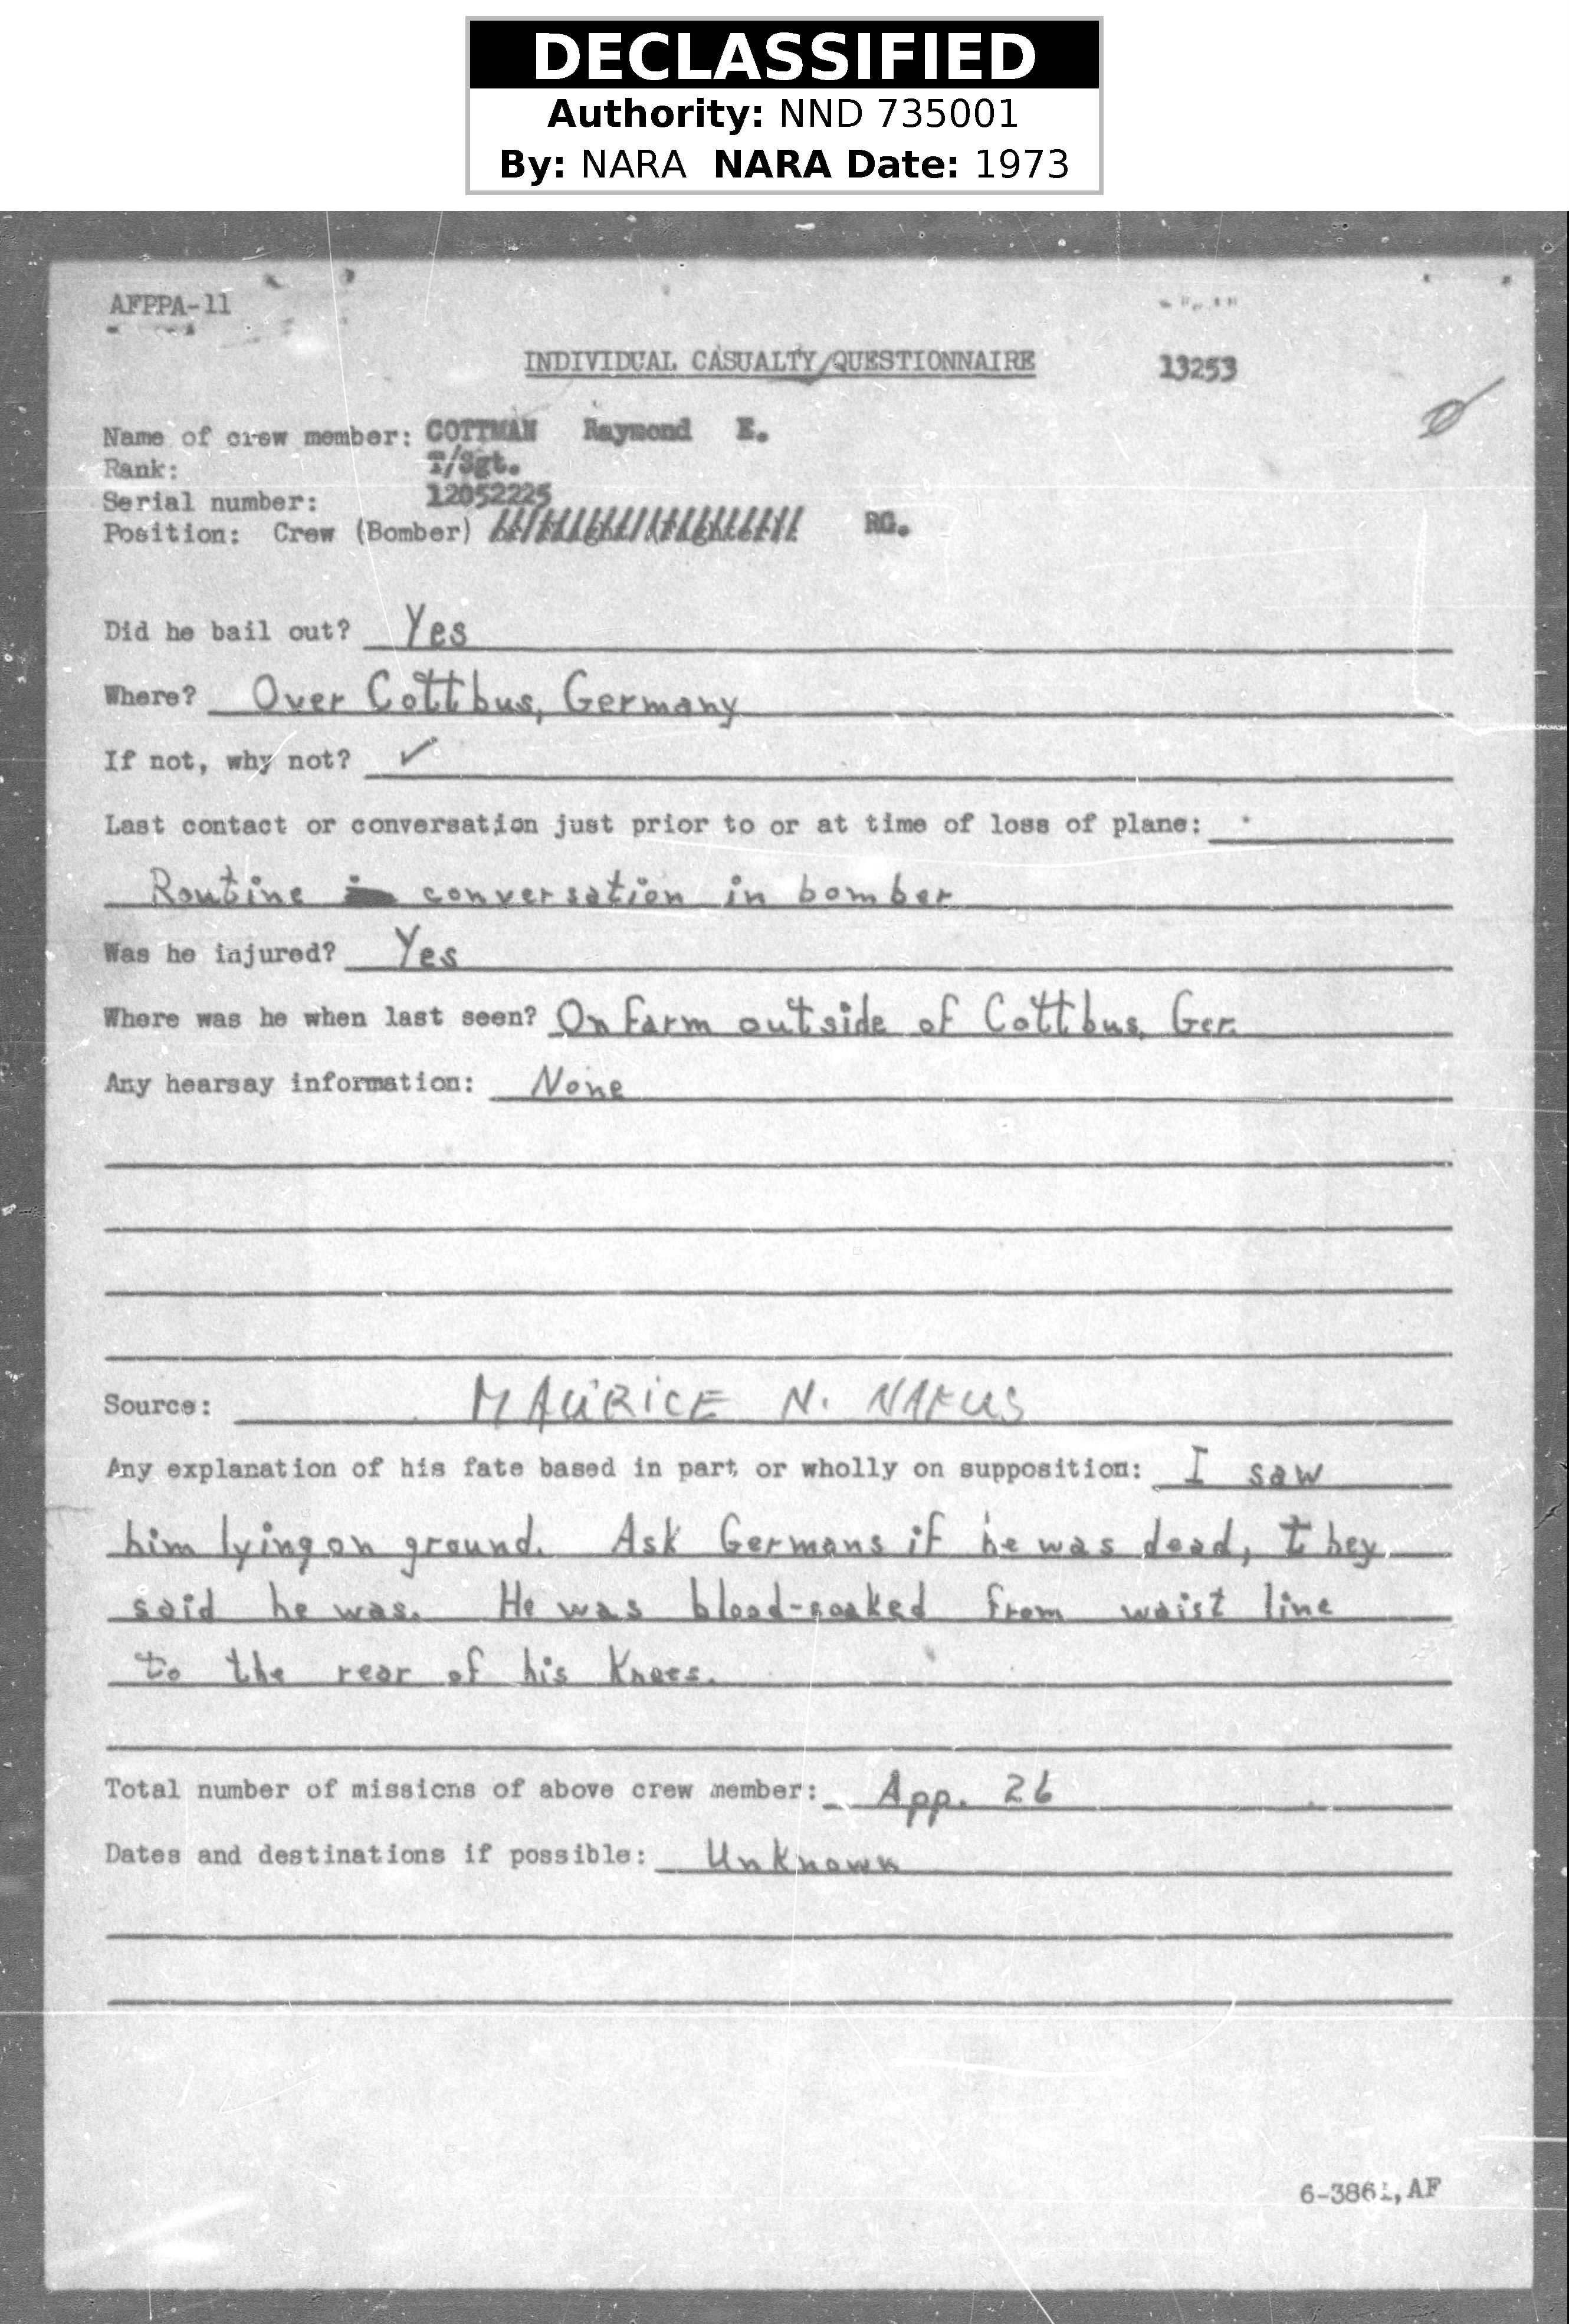 DECLASSIFIED
Authority: NND 735001
By: NARA NARA Date: 1973
AFPPA-11
INDIVIDUAL CASUALTY QUESTIONNAIRE 13253
Name of crew member: COTTMAN Raymond E.
Rank: T/Sgt.
Serial number: 12052225
Position: Crew (Bomber) RG.
Did he bail out? Yes
Where? Over Cottbus, Germany
If not, why not? ✓
Last contact or conversation just prior to or at time of loss of plane:
Routine conversation in bomber
Was he injured? Yes
Where was he when last seen? On farm outside of Cottbus, Ger.
Any hearsay information: None
Source: MAURICE N. NAFUS
Any explanation of his fate based in part or wholly on supposition: I saw
him lying on ground. Ask Germans if he was dead, they
said he was. He was blood-soaked from waist line
to the rear of his Knees.
Total number of missions of above crew member: App. 26
Dates and destinations if possible: Unknown
6-3861,AF